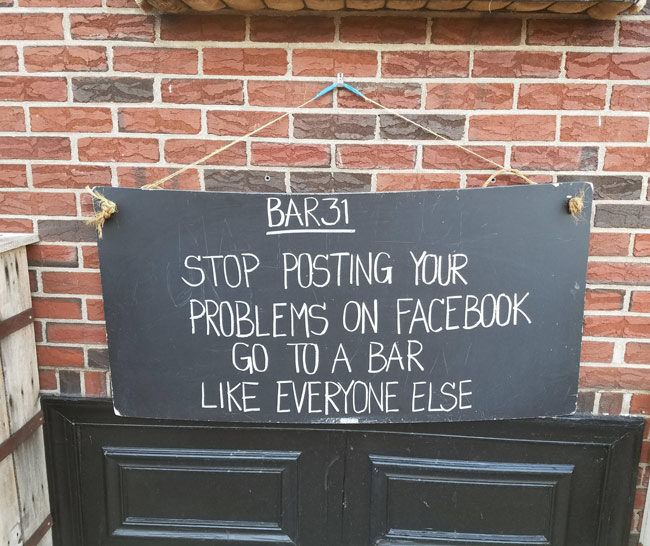 BAR31
STOP POSTING YOUR
PROBLEMS ON FACEBOOK
GO TO A BAR
LIKE EVERYONE ELSE